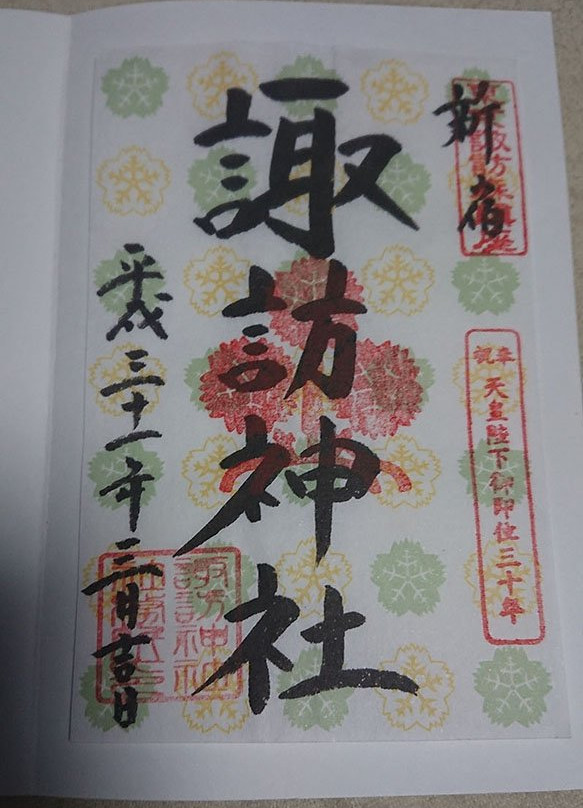 新宿
奉祝 天皇陛下御即位三十年
諏訪神社
平成三十一年三月吉日
諏訪神社